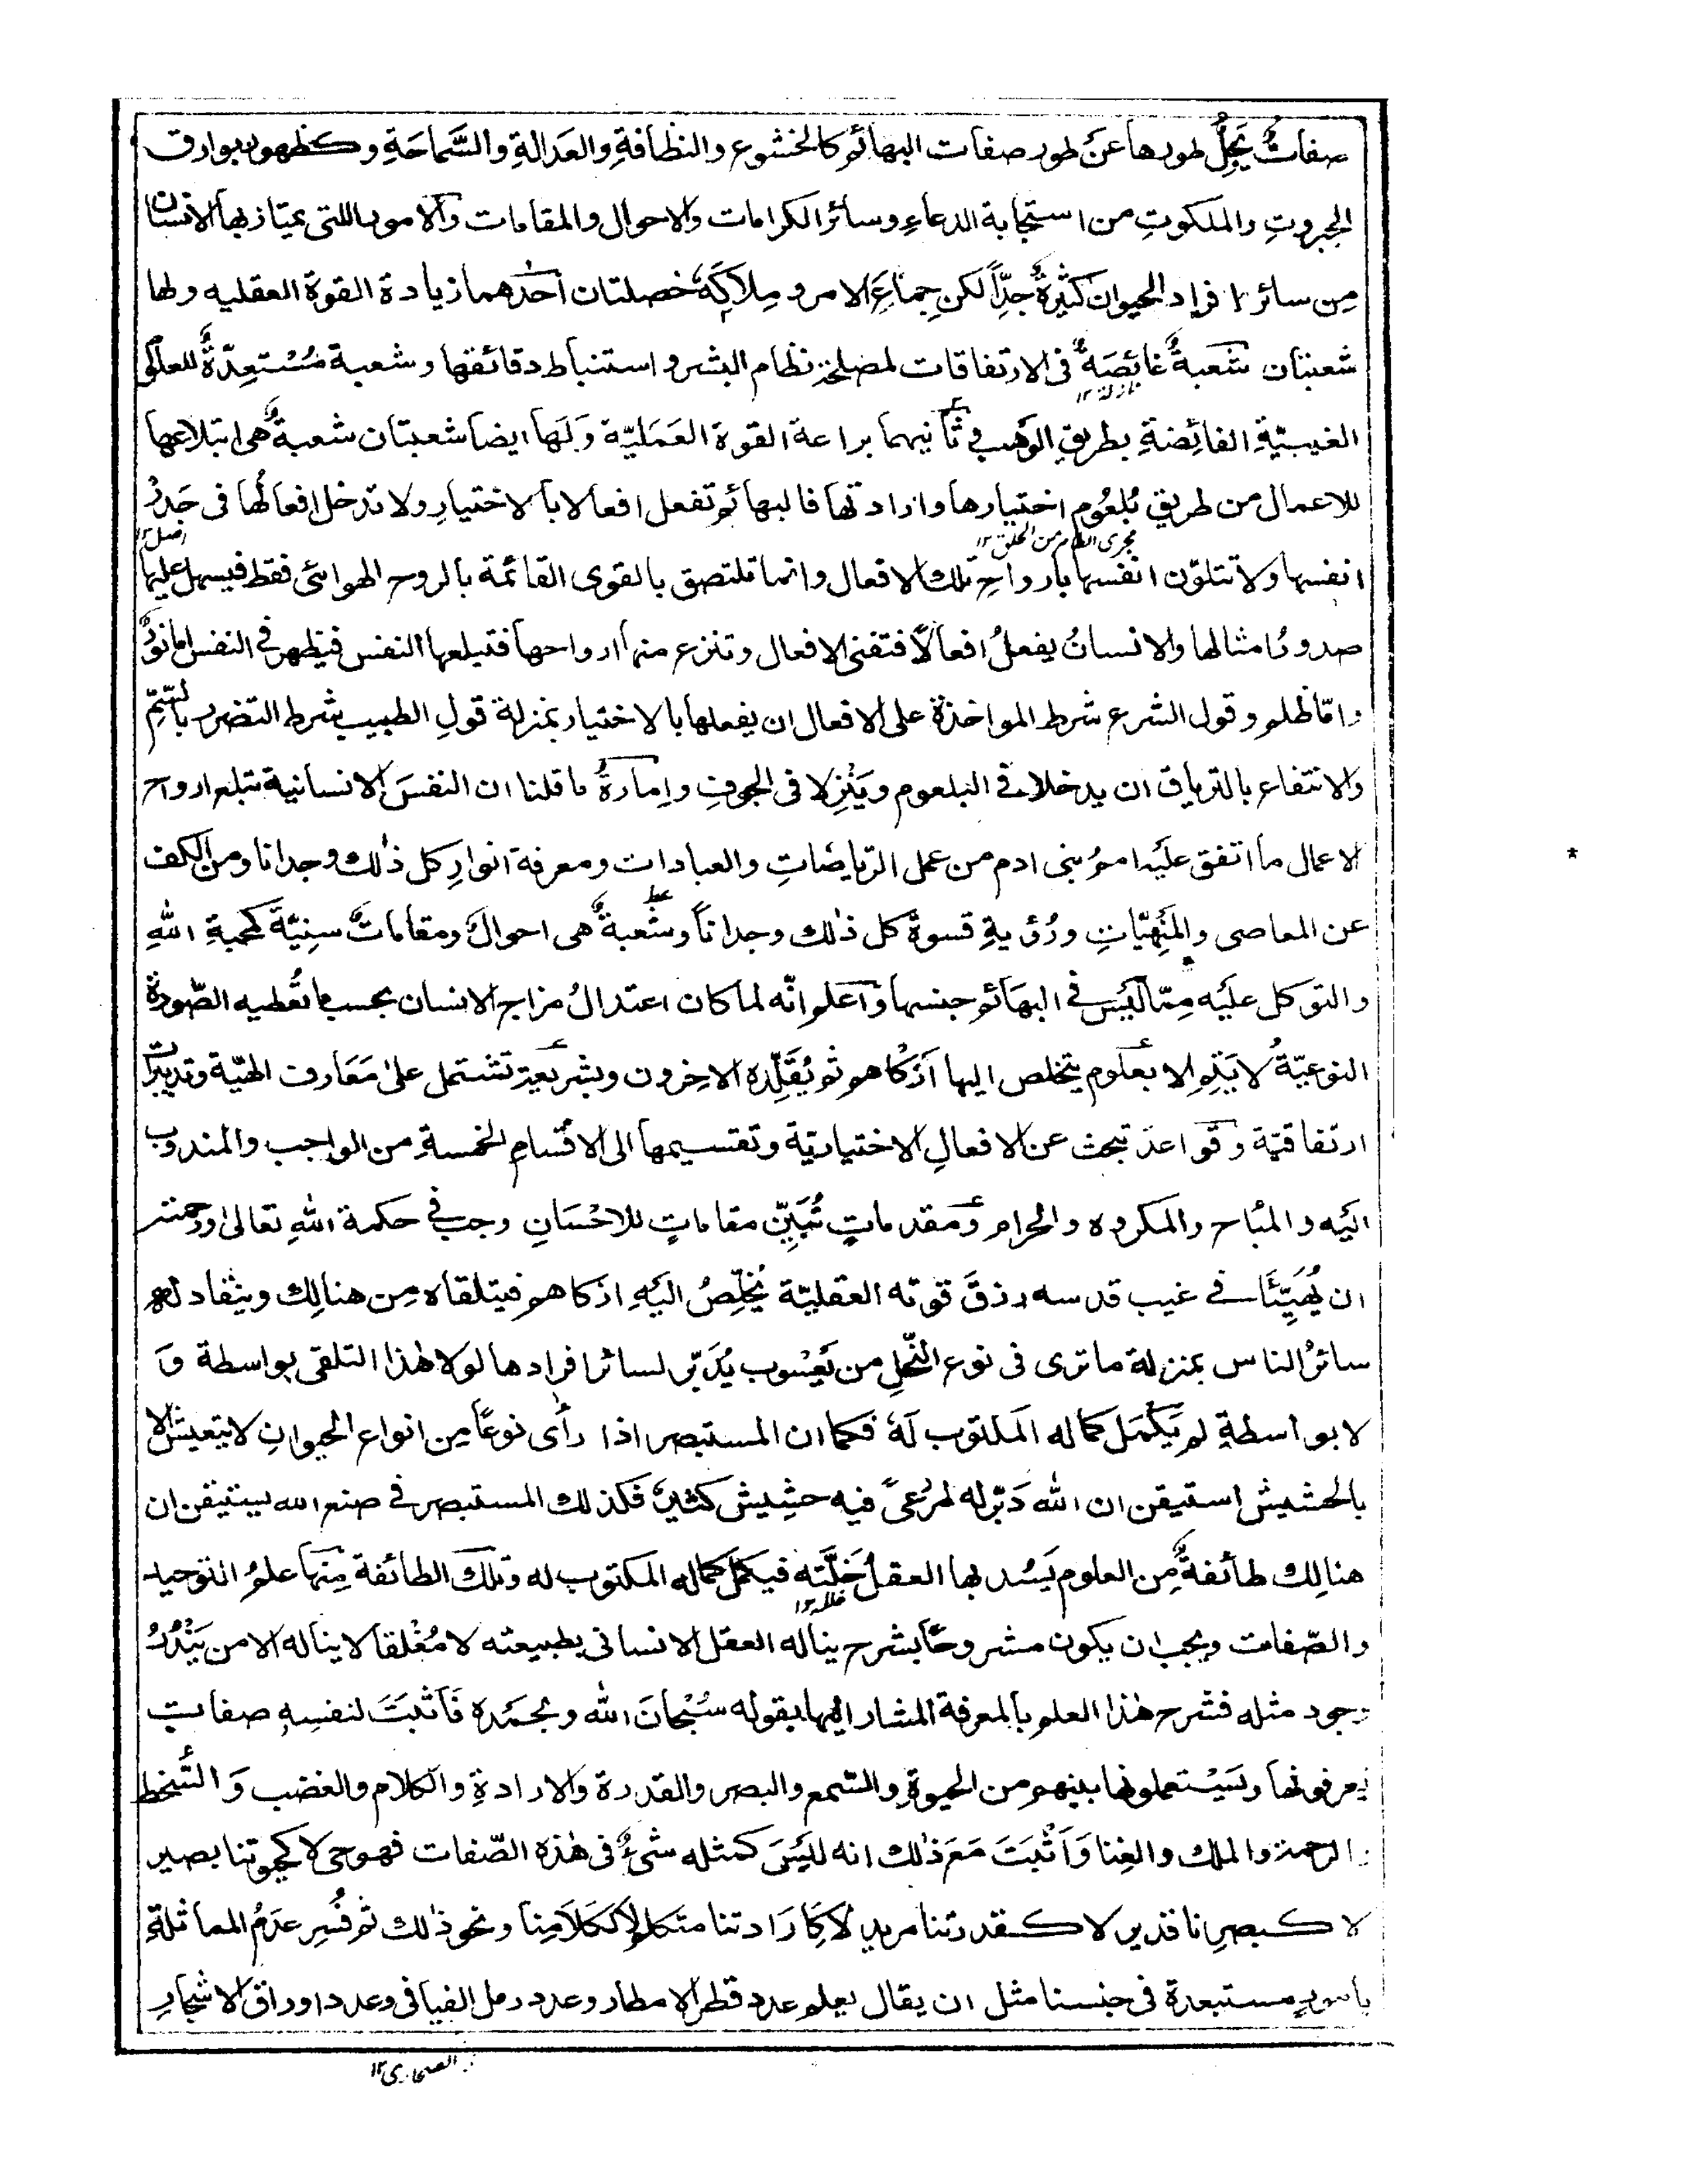 صفات يجل طورها عن طور صفات البهائم كالخشوع والنظافةِ والعَدالةِ والسَّماحَةِ وكظهور بوارق
الجبروتِ والملكوتِ من استجابة الدعاءِ وسائر الكرامات والاحوال والمقامات والامور اللتى يمتاز بها الانسان
مِن سائر افراد الحيوان كثيرةٌ جدًّا لكن جِماعَ الامر و مِلاكَه خصلتان احدهما زيادة القوة العقليه ولها
شعبتان شعبةٌ غائصَةٌ فى الارتفاقات لمصلحة نظام البشر و استنباط دقائقها وشعبة مُسْتعِدّةٌ للعلوم
نازلة ١٢
الغيبيّةِ الفائِضةِ بطريقِ الوَهب و ثانيهما براعة القوة العَمَليّة وَلَها ايضا شعبتان شعبةٌ هى ابتلاعها
للاعمال من طريق بُلعُوم اختيارها وارادتها فالبهائم تفعل افعالا بالاختيارِ ولا تدخل افعالُها فى جَذرِ
مجرى الطعام من الحلق ١٢
اصل ١٢
انفسها ولا تتلوّن انفسها بارواحِ تلك الافعال وانما تلتصق بالقوى القائمة بالروح الهوائى فقط فيسهل عليها
صدور امثالها والانسانُ يفعلُ افعالًا فتفنى الافعال وتنزع منها ارواحها فتبلعها النفس فيظهر فى النفس اما نورٌ
واما ظلم وقول الشرع شرط المواخذة على الافعال ان يفعلها بالاختيار بمنزلة قولِ الطبيب شرط التضرر بالسّمِّ
والانتفاع بالترياق ان يدخلا فى البلعوم ويَنْزِلا فى الجوفِ وامارةُ ما قلنا ان النفسَ الانسانية تبلع ارواح
الاعمال ما اتفق عليه امم بنى ادم من عمل الرّياضاتِ والعبادات ومعرفة انوارِ كل ذٰلك وجدانا ومن الكف
عن المعاصى والمَنهِيّاتِ ورُؤيةِ قسوة كل ذٰلك وجداناً وشُعبةٌ هى احوال ومقامات سنِيّة كمحبةِ اللهِ
والتوكل عليه ممّا ليس فى البهَائم جنسها واعلم انّه لما كان اعتدالُ مزاج الانسان بحسب ما تُعطيه الصّورة
النوعيّةُ لا يَتم الا بعلوم يتخلص اليها اَزكاهم ثم يُقَلِّده الاخرون وبشريعة تشتمل علىٰ مَعَارف الٰهيّة وتدبيرات
ارتفاقيّة وقواعد تبحث عن الافعالِ الاختياريّة وتقسيمها الى الاقسامِ الخمسةِ من الواجب والمندوب
اليه والمبُاح والمكروه والحرام ومقدماتٍ تُبَيِّنُ مقاماتِ للاحْسَانِ وجب فى حكمة اللهِ تعالىٰ ورحمته
ان يُهَيِّئَ فى غيب قدسه رزقَ قوته العقليّة يُخلِّصُ اليَهِ ازكاهم فيتلقاه مِن هنالِك وينقاد له
سائرُ الناس بمنزلة ما ترى فى نوع النّحلِ من يَعْسُوب يُدَبّر لسائر افرادها لولا هٰذا التلقى بواسطة وَ
لا بواسطةٍ لم يَكمَل كماله المكتوب لَهٗ فكما ان المستبصر اذا رأى نوعًا مِن انواع الحيوانِ لا يتعيش الا
بالحشيش استيقن ان الله دَبّر له مَرْعىً فيه حشِيش كثير فكذلك المستبصر فى صنع الله يستيقن ان
هنالِك طائفةٌ مِن العلوم يَسُد بها العقلُ خَلَّته فيكمل كماله المكتوب له وتلك الطائفة مِنها علمُ التوحيد
خلل ١٢
والصّفات ويجب ان يكون مشروحًا بشرح يناله العقل الانسانى بطبيعته لا مُغْلقا لا يناله الا من يَنْدُرُ
وجود مثله فشرح هٰذا العلم بالمعرفة المشار اليها بقوله سُبْحانَ الله وبحمْده فَاَثبَتَ لنفسِهٖ صفاتٍ
يعرفونها ويَسْتعملونها بينهم من الحيٰوةِ والسّمع والبصر والقدرة والارادةِ والكلام والغضب وَ السُّخط
والرحمة والملك والغِنا وَاَثْبَتَ مَعَ ذٰلك انه ليسَ كمثله شىءٌ فى هٰذه الصّفات فهو حى لا كحيٰوتنا بصير
لا كبصرِنا قدير لا كقدرتنا مريد لا كَارَادتنا متكلم لا ككلامِنا ونحو ذٰلك ثم فُسِر عدَمُ المماثلةِ
بامور مستبعدة فى جنسنا مثل ان يقال يعلم عدد قطر الامطار وعدد رمل الفيافى وعدد اوراق الاشجارِ
الصحارى ١٢
*